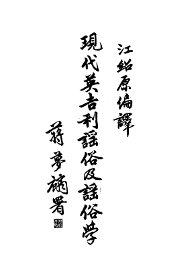 江紹原編譯
現代英吉利謠俗及謠俗學
蔣夢麟署